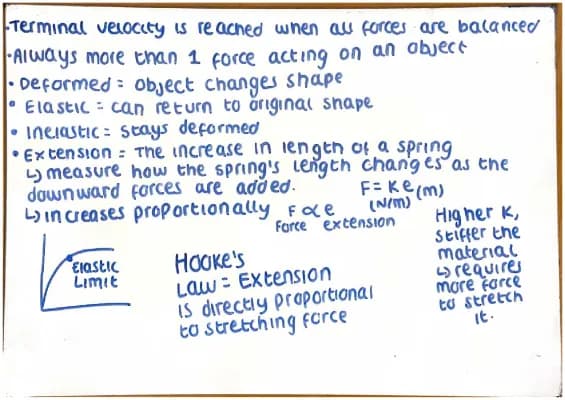 •Terminal velocity is reached when all forces are balanced
•Always more than 1 force acting on an object
• Deformed = object changes shape
• Elastic = can return to original shape
• Inelastic = stays deformed
• Extension = The increase in length of a spring
↳ measure how the spring's length changes as the
downward forces are added.
↳ increases proportionally F ∝ e
Force extension
F = Ke (m)
(N/m)
Higher K,
stiffer the
material
↳ requires
more force
to stretch
it.
Elastic
Limit
Hooke's
Law = Extension
is directly proportional
to stretching force